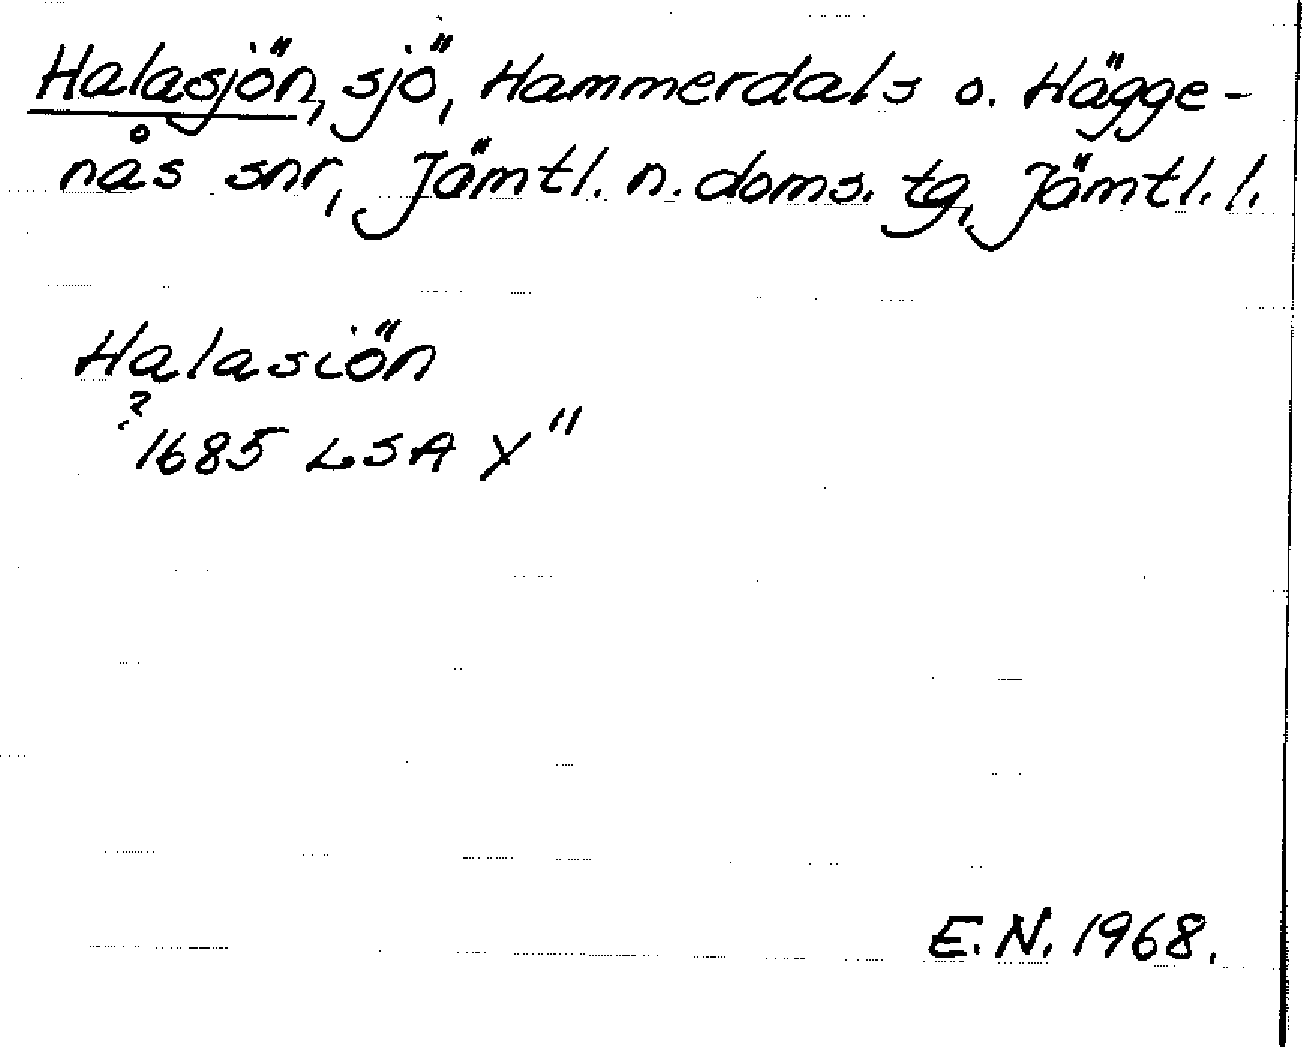 Halasjön, sjö, Hammerdals o. Hägge-
nås snr, Jämtl. n. doms. tg, Jämtl. l.
Halasiön
? 1685 LSA X"
E.N. 1968.